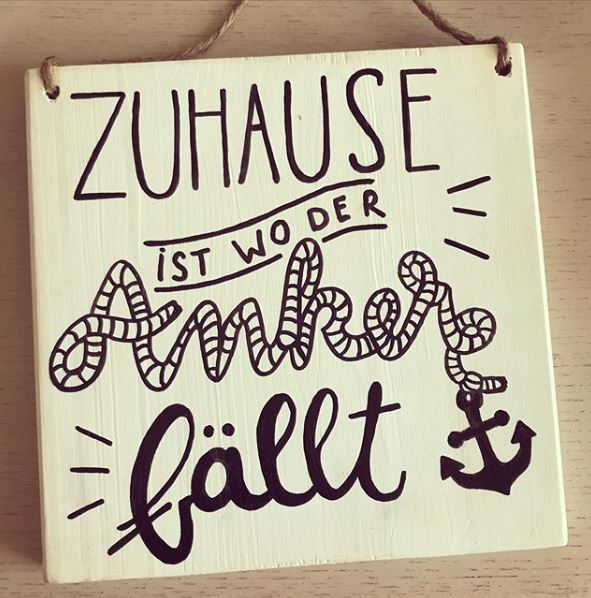 ZUHAUSE
iST WO DER
Anker
fällt